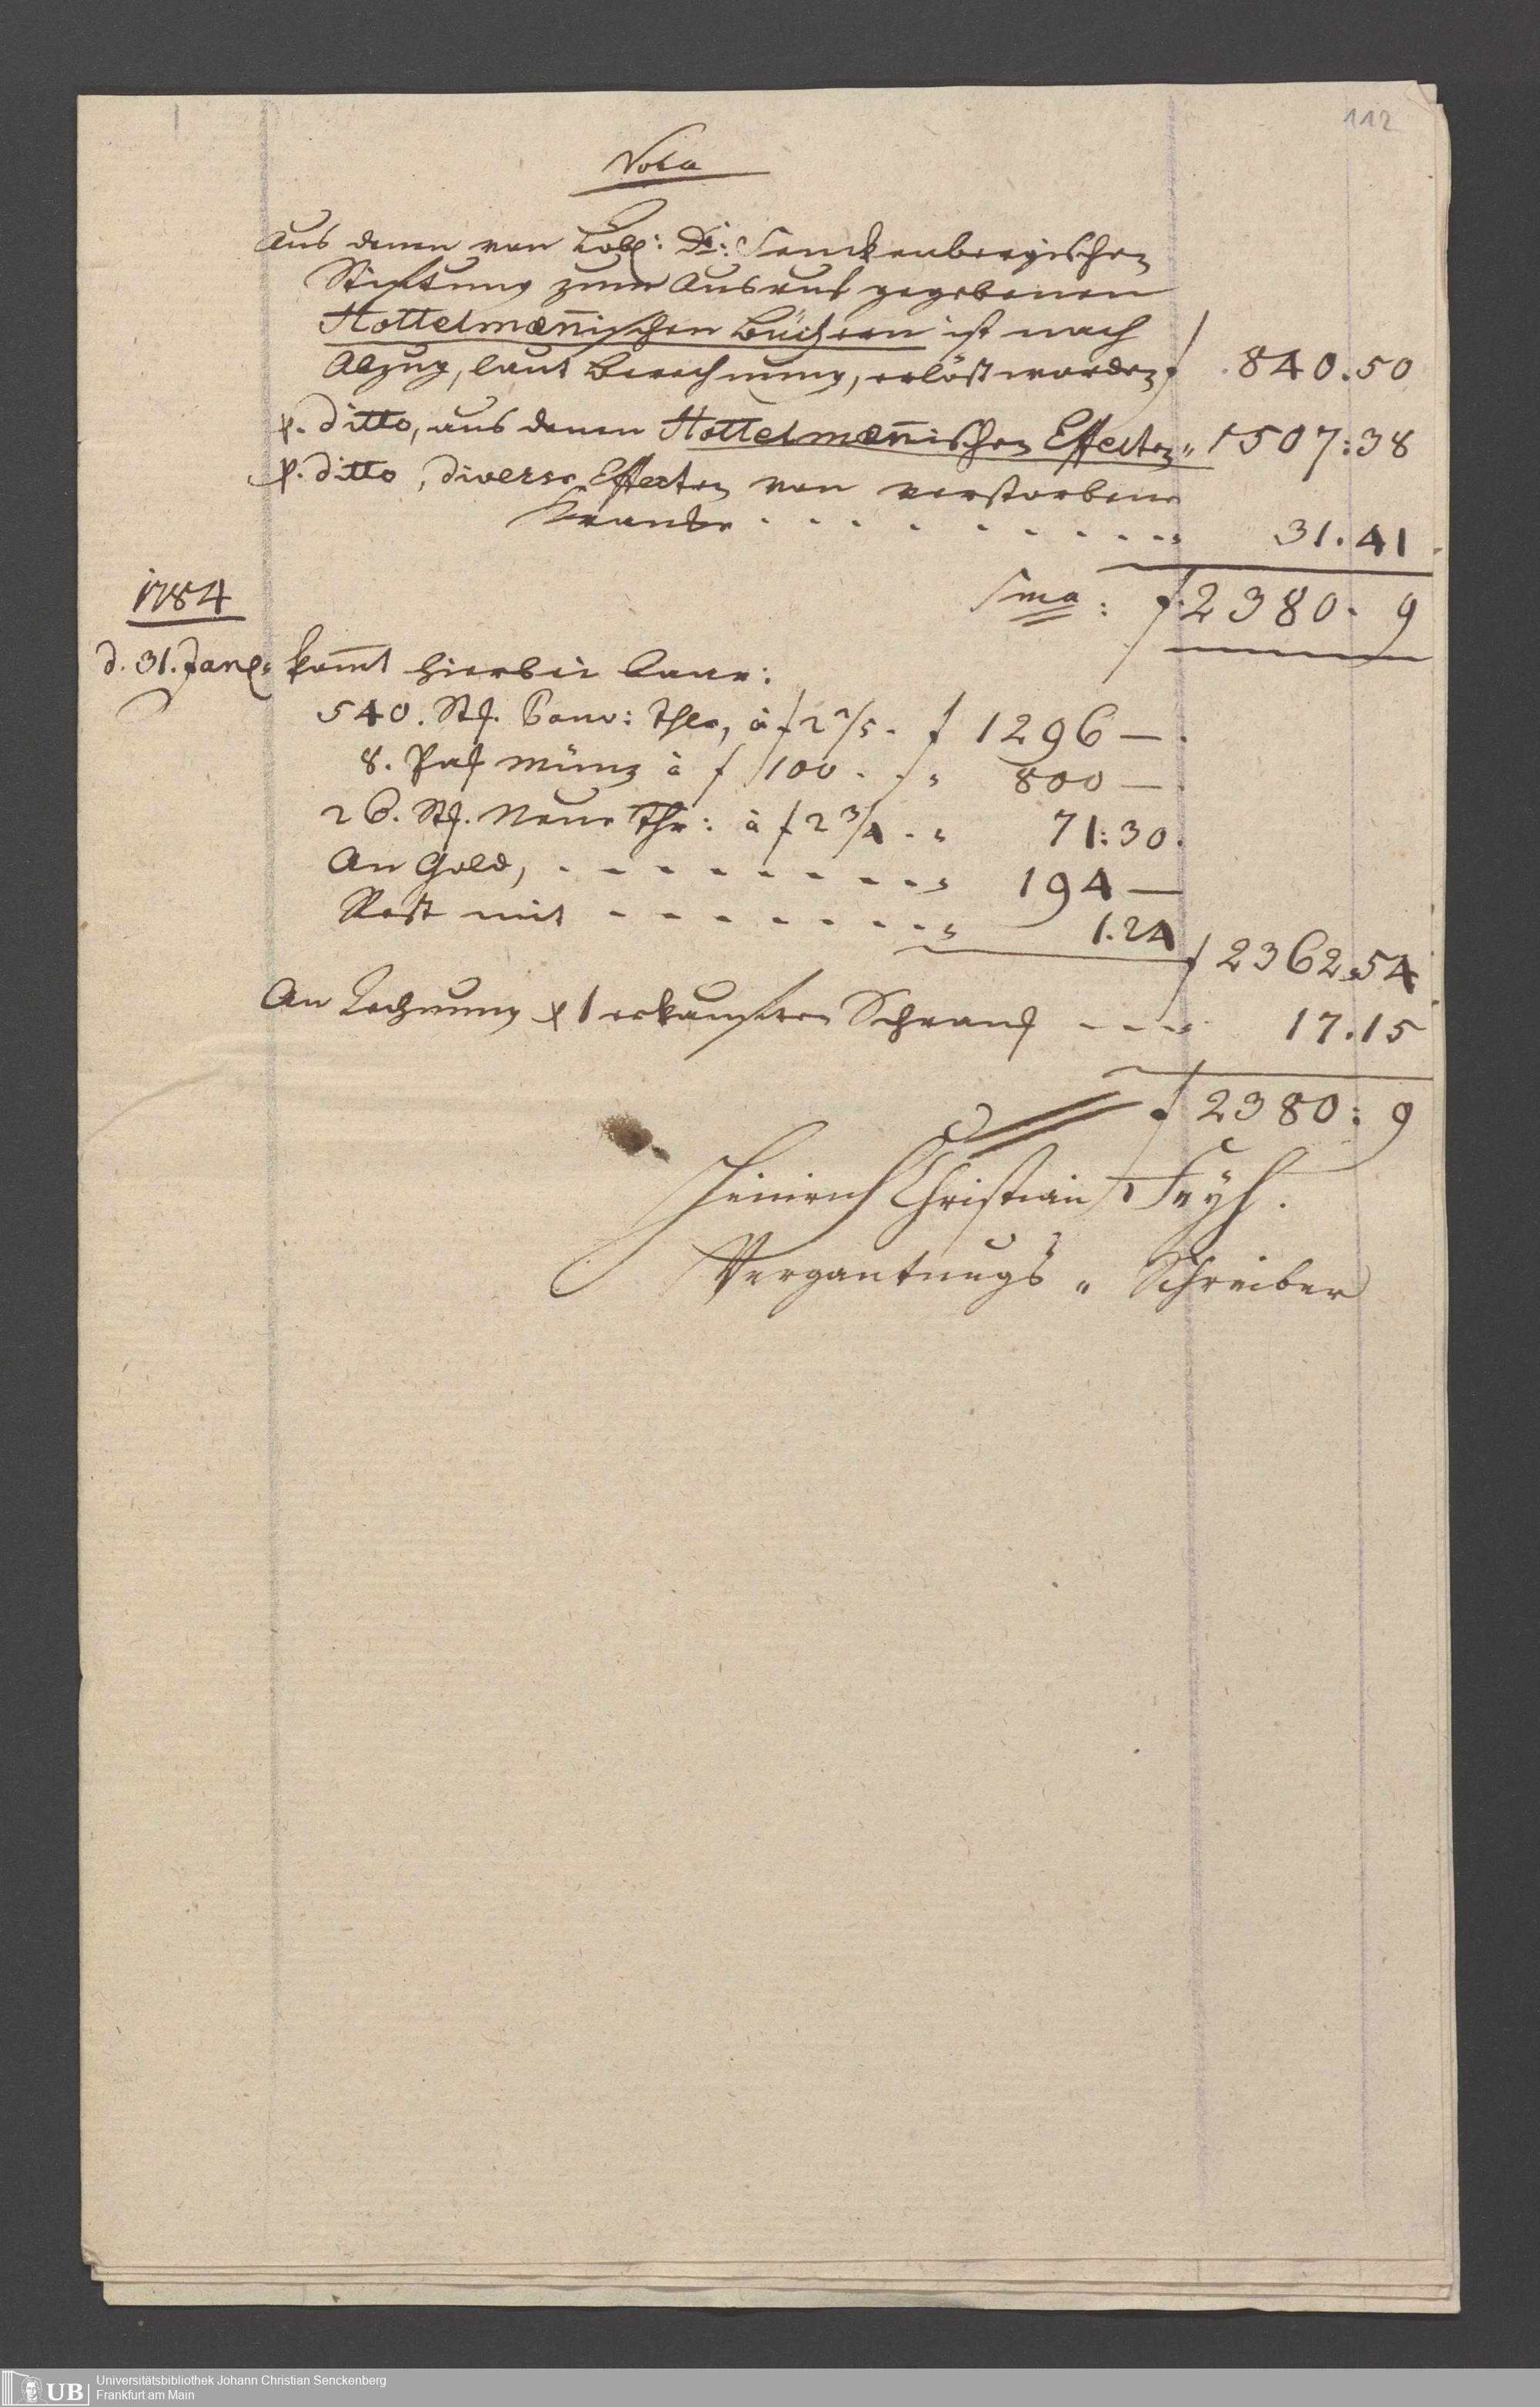 112
Nota
Aus denen von Löbl: Dr: Senckenbergischen
Stiftung zum Ausruf gegebenen
Hottelmän̄ischen Büchern ist nach
Abzug, laut Berechnung, erlöst worden f 840.50
p. ditto, aus denen Hottelmän̄ischen Effecten „ 1507:38
p. ditto, diverse Effecten von verstorbene
Krancke - - - - - - - - - „ 31.41
Sma: f 2380. 9
1784
d. 31. Jan. kom̄t hierbei baar:
540. Stk. Conv: Thlr, à f 2 2/5 - f 1296 —
8. Pak Müntz à f 100 - - „ 800 —
26. Stk. Neue Thr: à f 2 3/4 - „ 71:30.
An Gold, - - - - - - - - „ 194 —
Rest mit - - - - - - - - „ 1.24
f 2362.54
An Rechnung p 1 erkauften Schranck - - - „ 17.15
f 2380: 9
Heinrich Christian Feyh.
Vergantungs„ Schreiber
UB
Universitätsbibliothek Johann Christian Senckenberg
Frankfurt am Main